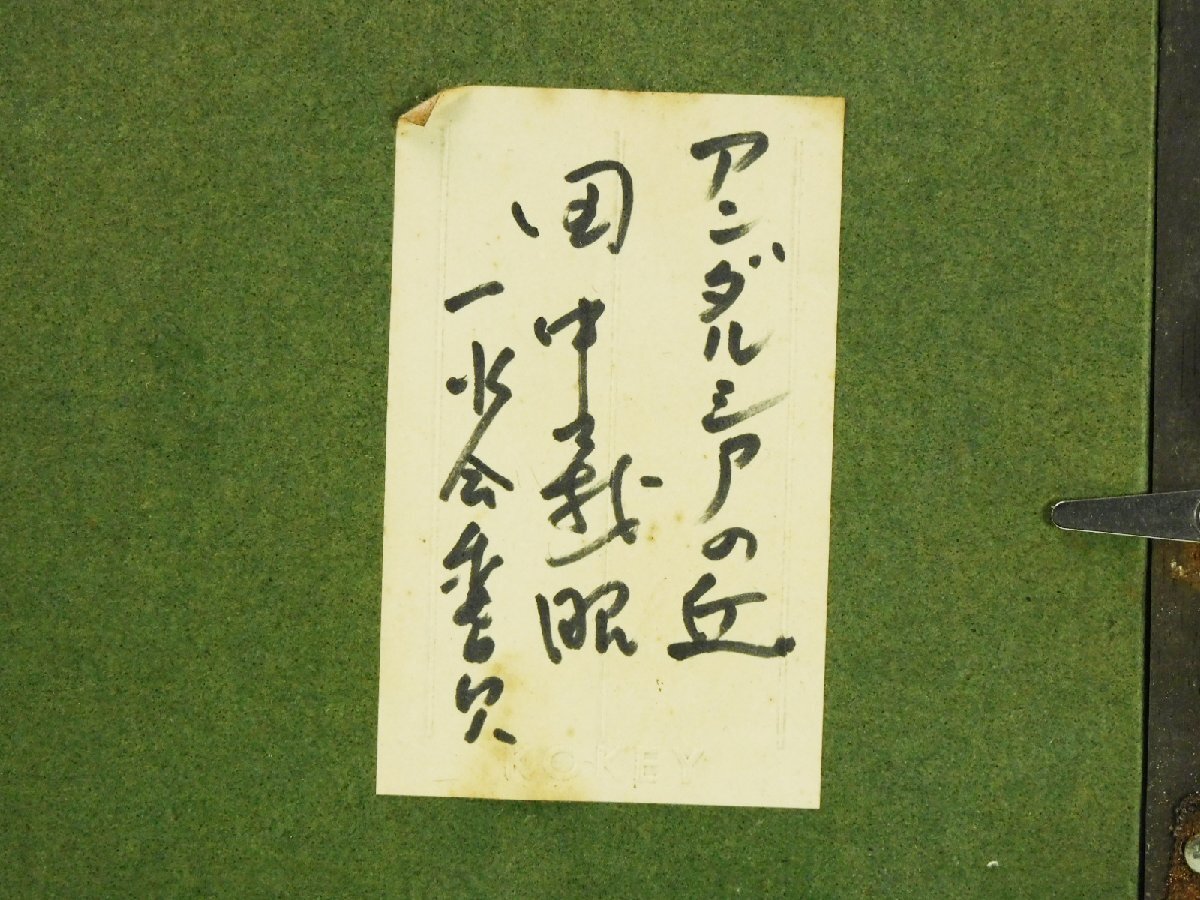 アンダルシアの丘
田中義昭
一水会委員
KO-KEY